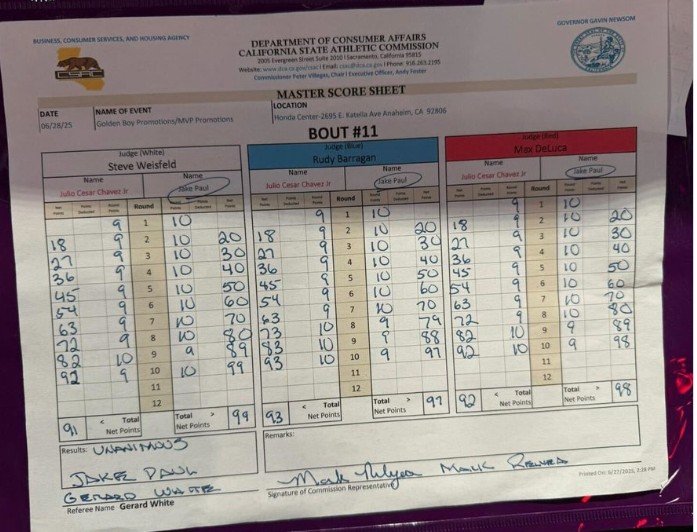 BUSINESS, CONSUMER SERVICES, AND HOUSING AGENCY
GOVERNOR GAVIN NEWSOM
CSAC
DEPARTMENT OF CONSUMER AFFAIRS
CALIFORNIA STATE ATHLETIC COMMISSION
2005 Evergreen Street Suite 2010 | Sacramento, California 95815
Website: www.dca.ca.gov/csac | Email: csac@dca.ca.gov | Phone 916.263.2195
Commissioner Peter Villegas, Chair | Executive Officer, Andy Foster
MASTER SCORE SHEET
DATE NAME OF EVENT LOCATION
06/28/25 Golden Boy Promotions/MVP Promotions Honda Center-2695 E. Katella Ave Anaheim, CA 92806
BOUT #11
Judge (White) Judge (Blue) Judge (Red)
Steve Weisfeld Rudy Barragan Max DeLuca
Name Name Name Name Name Name
Julio Cesar Chavez Jr Jake Paul Julio Cesar Chavez Jr Jake Paul Julio Cesar Chavez Jr Jake Paul
Net Points Points Deducted Round Points Round Round Points Points Deducted Net Points Net Points Points Deducted Round Points Round Round Points Points Deducted Net Points Net Points Points Deducted Round Points Round Round Points Points Deducted Net Points
9 1 10 9 1 10 9 1 10
18 9 2 10 20 18 9 2 10 20 18 9 2 10 20
27 9 3 10 30 27 9 3 10 30 27 9 3 10 30
36 9 4 10 40 36 9 4 10 40 36 9 4 10 40
45 9 5 10 50 45 9 5 10 50 45 9 5 10 50
54 9 6 10 60 54 9 6 10 60 54 9 6 10 60
63 9 7 10 70 63 9 7 10 70 63 9 7 10 70
72 9 8 10 80 73 10 8 9 79 72 9 8 10 80
82 10 9 9 89 83 10 9 9 88 82 10 9 9 89
92 9 10 10 99 93 10 10 9 97 92 10 10 9 98
11 11 11
12 12 12
91 < Total Net Points Total > Net Points 99 93 < Total Net Points Total > Net Points 97 92 < Total Net Points Total > Net Points 98
Results: UNANIMOUS
Remarks:
JAKE PAUL
GERARD WHITE
Referee Name Gerard White
Signature of Commission Representative
Printed On: 6/27/2025, 2:28 PM